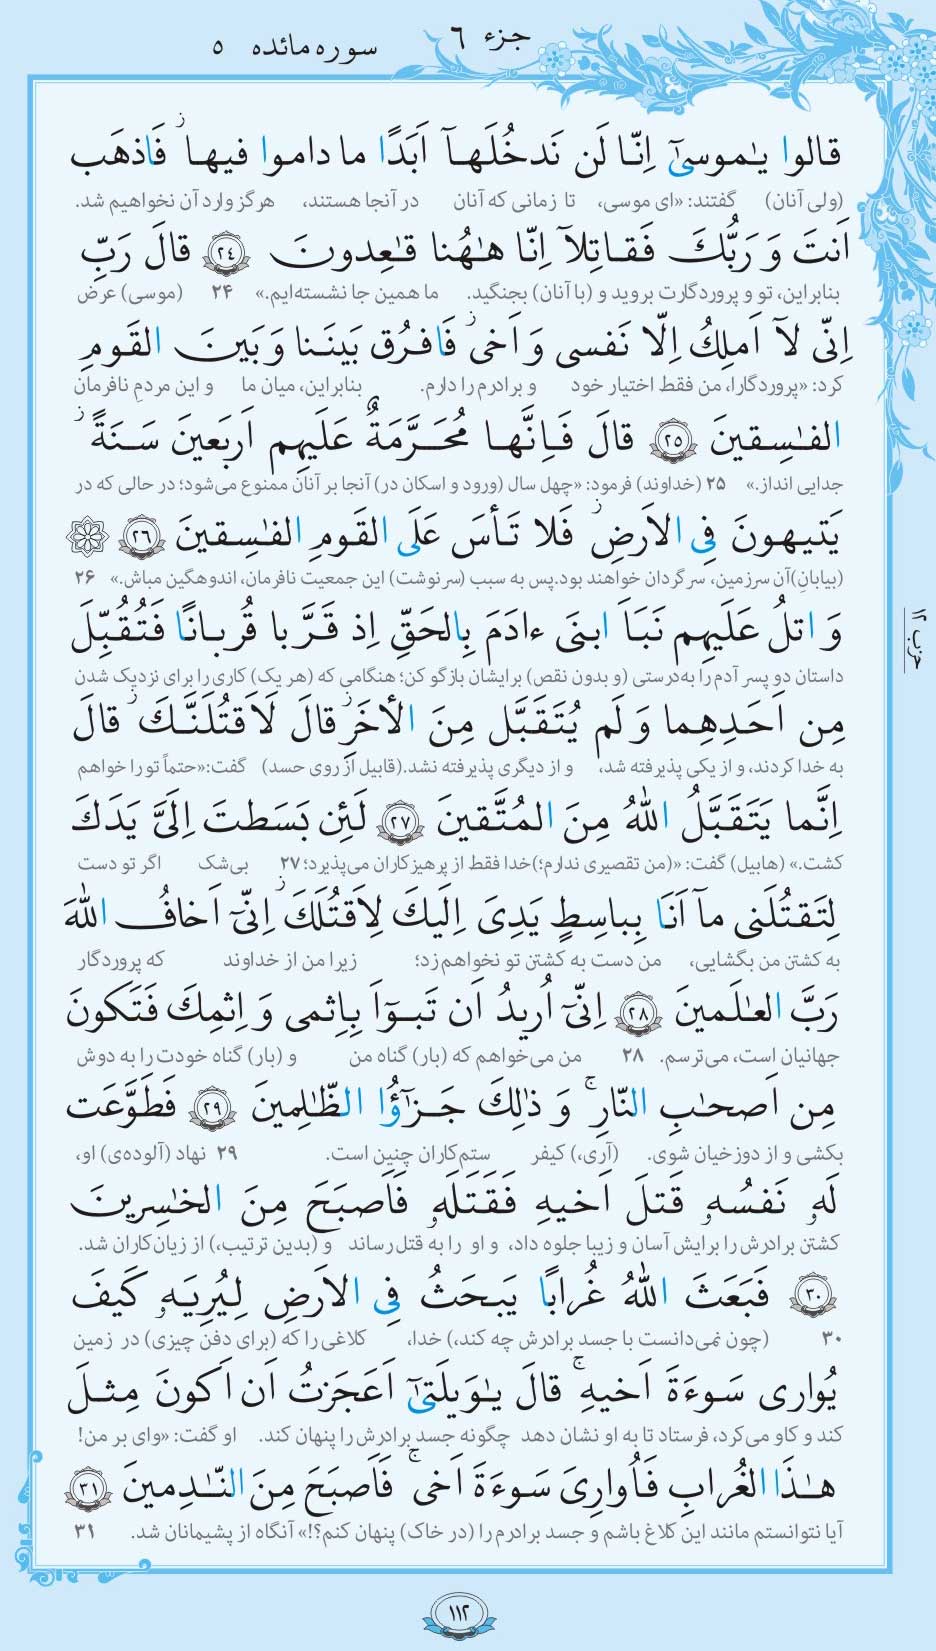 جزء ۶
سوره مائده ۵
قالوا یٰموسیٰٓ اِنّا لَن نَدخُلَهآ اَبَدًا ما داموا فیها ۖ فَاذهَب
(ولی آنان) گفتند: «ای موسی، تا زمانی که آنان در آنجا هستند، هرگز وارد آن نخواهیم شد.
اَنتَ وَ رَبُّكَ فَقاتِلآ اِنّا هٰهُنا قٰعِدونَ ﴿۲۴﴾ قالَ رَبِّ
بنابراین، تو و پروردگارت بروید و (با آنان) بجنگید. ما همین جا نشسته‌ایم.» ۲۴ (موسی) عرض
اِنّی لآ اَملِكُ اِلّا نَفسی وَ اَخی ز فَافرُق بَینَنا وَ بَینَ القَومِ
کرد: «پروردگارا، من فقط اختیار خود و برادرم را دارم. بنابراین، میان ما و این مردمِ نافرمان
الفٰسِقینَ ﴿۲۵﴾ قالَ فَاِنَّها مُحَرَّمَةٌ عَلَیهِم اَربَعینَ سَنَةً ز
جدایی انداز.» ۲۵ (خداوند) فرمود: «چهل سال (ورود و اسکان در) آنجا بر آنان ممنوع می‌شود؛ در حالی که در
یَتیهونَ فِی الاَرضِ ز فَلا تَأسَ عَلَی القَومِ الفٰسِقینَ ﴿۲۶﴾
(بیابانِ) آن سرزمین، سرگردان خواهند بود. پس به سبب (سرنوشت) این جمعیت نافرمان، اندوهگین مباش.» ۲۶
وَ اتلُ عَلَیهِم نَبَاَ ابنَی ءادَمَ بِالحَقِّ اِذ قَرَّبا قُربانًا فَتُقُبِّلَ
داستان دو پسر آدم را به‌درستی (و بدون نقص) برایشان بازگو کن؛ هنگامی که (هر یک) کاری را برای نزدیک شدن
مِن اَحَدِهِما وَ لَم یُتَقَبَّل مِنَ الأخَرِ ز قالَ لَاَقتُلَنَّكَ ز قالَ
به خدا کردند، و از یکی پذیرفته شد، و از دیگری پذیرفته نشد. (قابیل از روی حسد) گفت: «حتماً تو را خواهم
اِنَّما یَتَقَبَّلُ اللهُ مِنَ المُتَّقینَ ﴿۲۷﴾ لَئِن بَسَطتَ اِلَیَّ یَدَكَ
کشت.» (هابیل) گفت: «(من تقصیری ندارم؛) خدا فقط از پرهیزکاران می‌پذیرد؛ ۲۷ بی‌شک اگر تو دست
لِتَقتُلَنی مآ اَنَا بِباسِطٍ یَدِیَ اِلَیكَ لِاَقتُلَكَ ز اِنّیٓ اَخافُ اللهَ
به کشتن من بگشایی، من دست به کشتن تو نخواهم زد؛ زیرا من از خداوند که پروردگار
رَبَّ العٰلَمینَ ﴿۲۸﴾ اِنّیٓ اُریدُ اَن تَبوٓاَ بِاِثمی وَ اِثمِكَ فَتَکونَ
جهانیان است، می‌ترسم. ۲۸ من می‌خواهم که (بار) گناه من و (بار) گناه خودت را به دوش
مِن اَصحٰبِ النّارِ ۚ وَ ذٰلِكَ جَزٰٓؤُا الظّٰلِمینَ ﴿۲۹﴾ فَطَوَّعَت
بکشی و از دوزخیان شوی. (آری،) کیفر ستم‌کاران چنین است. ۲۹ نهاد (آلوده‌ی) او،
لَهٗ نَفسُهٗ قَتلَ اَخیهِ فَقَتَلَهٗ فَاَصبَحَ مِنَ الخٰسِرینَ
کشتن برادرش را برایش آسان و زیبا جلوه داد، و او را به قتل رساند و (بدین ترتیب،) از زیان‌کاران شد.
﴿۳۰﴾ فَبَعَثَ اللهُ غُرابًا یَبحَثُ فِی الاَرضِ لِیُرِیَهٗ کَیفَ
۳۰ (چون نمی‌دانست با جسد برادرش چه کند،) خدا، کلاغی را که (برای دفن چیزی) در زمین
یُواری سَوءَةَ اَخیهِ ۚ قالَ یٰوَیلَتیٰٓ اَعَجَزتُ اَن اَکونَ مِثلَ
کند و کاو می‌کرد، فرستاد تا به او نشان دهد چگونه جسد برادرش را پنهان کند. او گفت: «وای بر من!
هٰذَا الغُرابِ فَاُوارِیَ سَوءَةَ اَخی ۚ فَاَصبَحَ مِنَ النّٰدِمینَ ﴿۳۱﴾
آیا نتوانستم مانند این کلاغ باشم و جسد برادرم را (در خاک) پنهان کنم؟!» آنگاه از پشیمانان شد. ۳۱
حزب ۱۲
۱۱۲